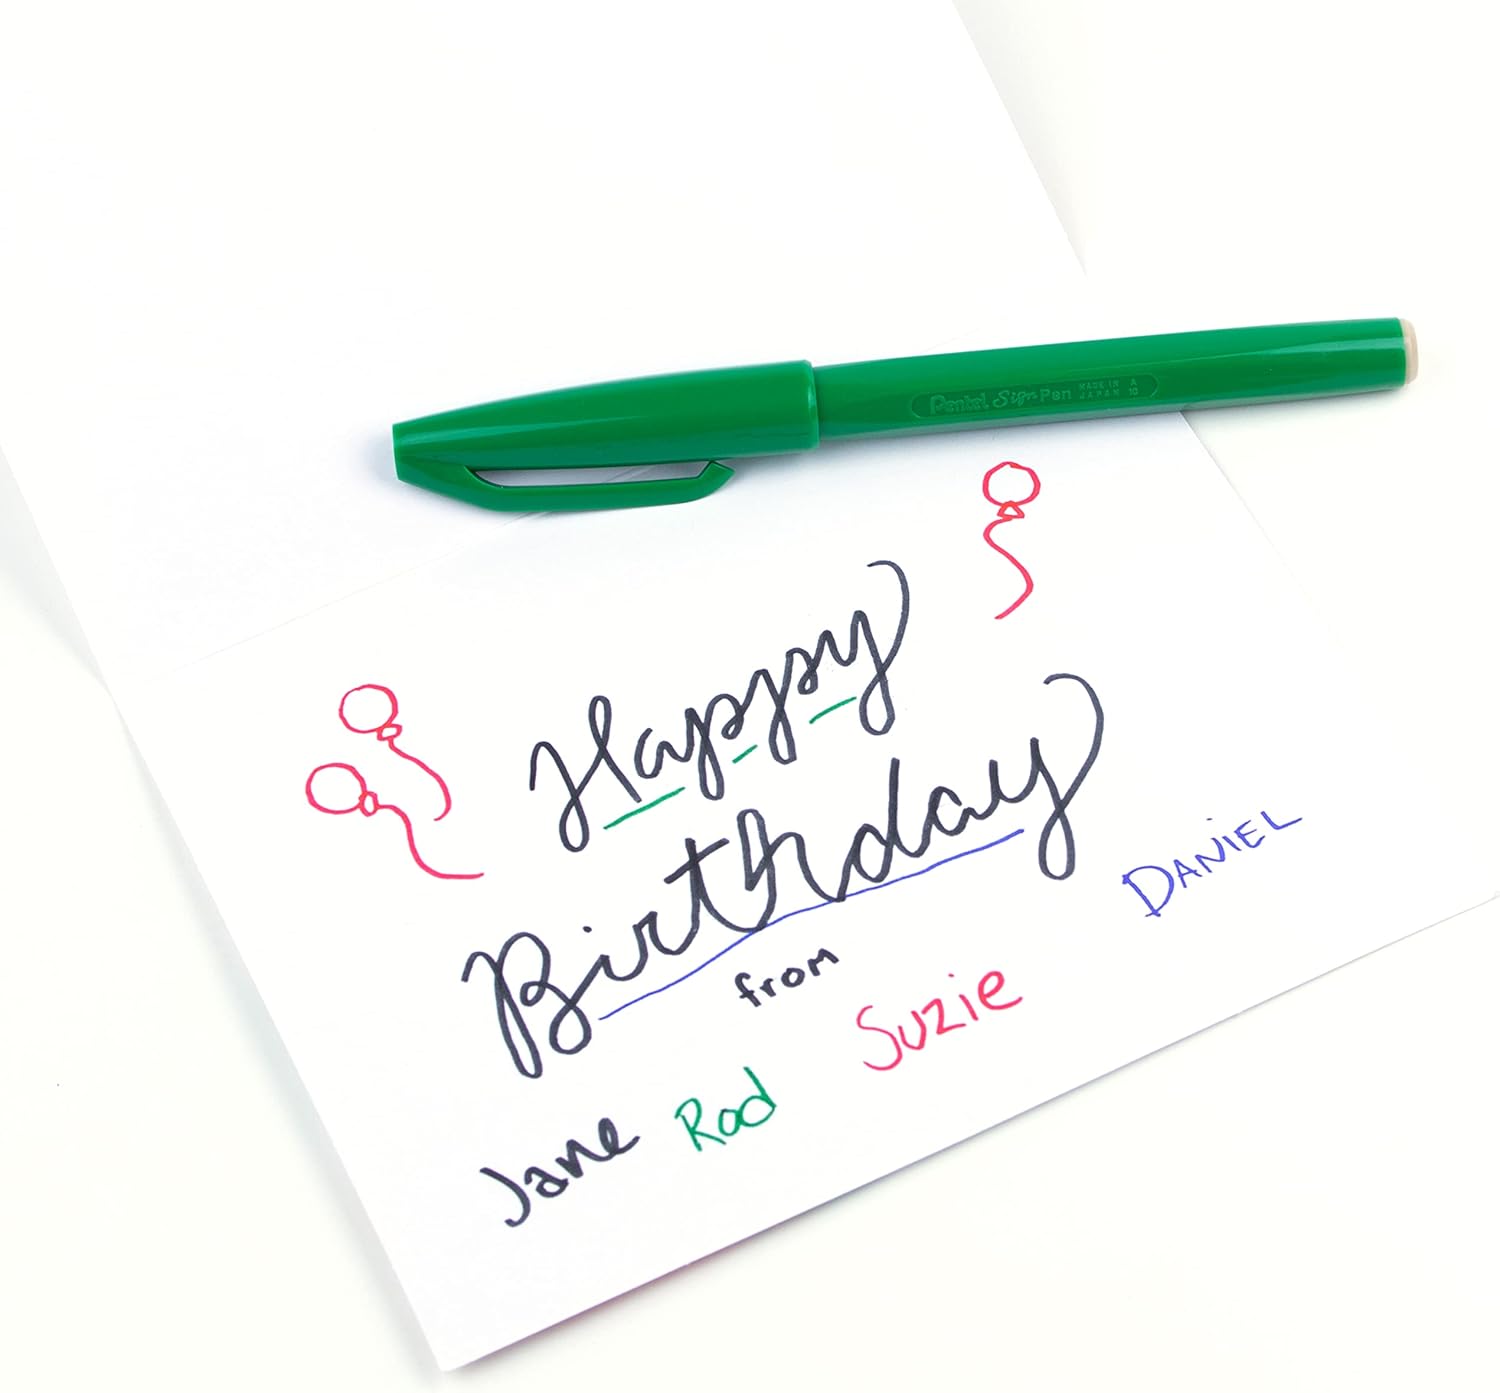 Pentel Sign Pen MADE IN JAPAN A 10
Happy
Birthday
from
Jane Rod Suzie DANiEL